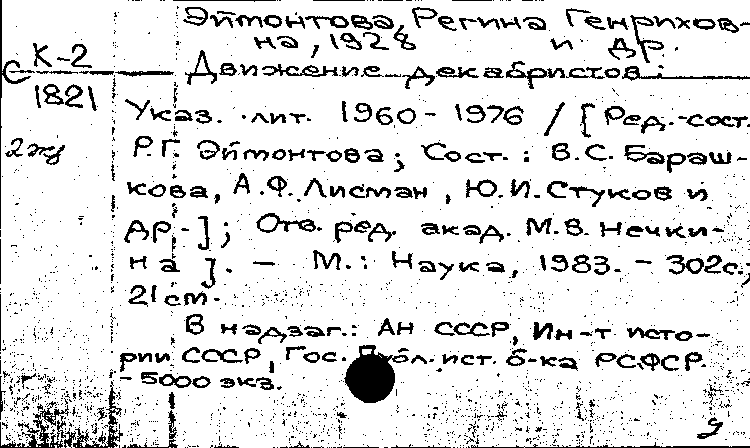 Эймонтова, Регина Генрихов-
на, 1928 и др.
С К-2
1821
Движение декабристов:
Указ. лит. 1960-1976 / [Ред.-сост.
2 экз
Р.Г. Эймонтова; Сост.: В.С. Бараш-
кова, А.Ф. Лисман, Ю.И. Стуков и
др.]; Отв. ред. акад. М.В. Нечки-
на]. - М.: Наука, 1983. - 302с.;
21 см.
В надзаг.: АН СССР, Ин-т исто-
рии СССР, Гос. Публ. ист. б-ка РСФСР.
- 5000 экз.
9